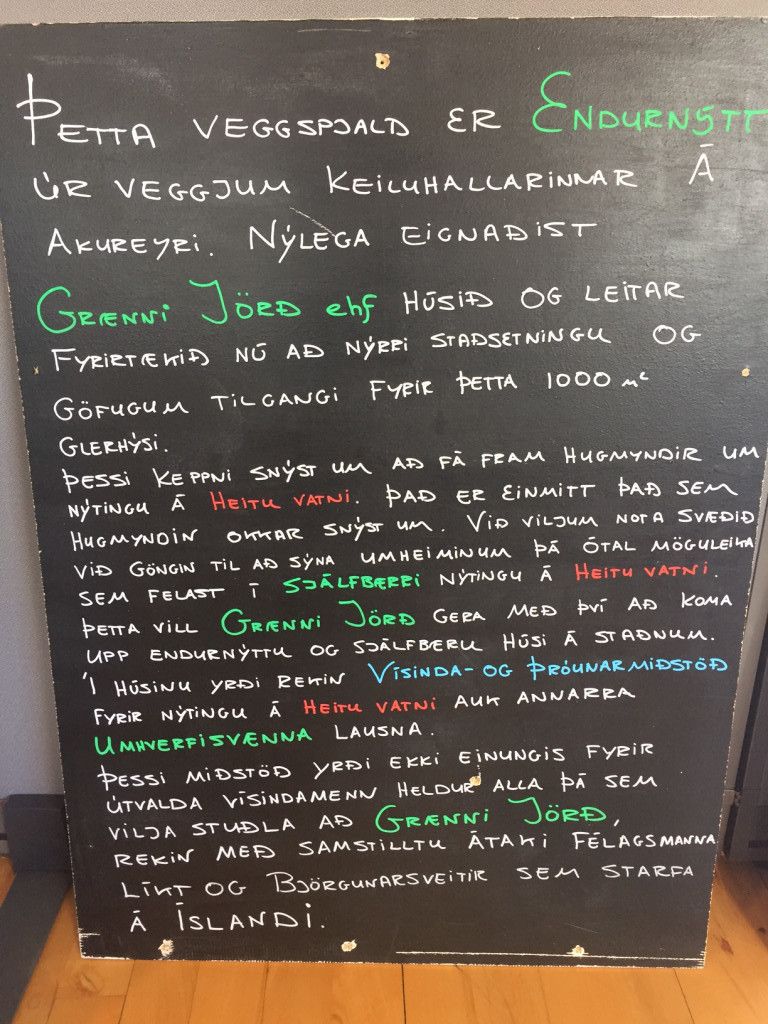 ÞETTA VEGGSPJALD ER ENDURNÝTT
ÚR VEGGJUM KEILUHALLARINNAR Á
AKUREYRI. NÝLEGA EIGNAÐIST
GRÆNNI JÖRÐ ehf HÚSIÐ OG LEITAR
FYRIRTÆKIÐ NÚ AÐ NÝRRI STAÐSETNINGU OG
GÖFUGUM TILGANGI FYRIR ÞETTA 1000 m²
GLERHÝSI.
ÞESSI KEPPNI SNÝST UM AÐ FÁ FRAM HUGMYNDIR UM
NÝTINGU Á HEITU VATNI. ÞAÐ ER EINMITT ÞAÐ SEM
HUGMYNDIN OKKAR SNÝST UM. VIÐ VILJUM NOTA SVÆÐIÐ
VIÐ GÖNGIN TIL AÐ SÝNA UMHEIMINUM ÞÁ ÓTAL MÖGULEIKA
SEM FELAST Í SJÁLFBÆRRI NÝTINGU Á HEITU VATNI.
ÞETTA VILL GRÆNNI JÖRÐ GERA MEÐ ÞVÍ AÐ KOMA
UPP ENDURNÝTTU OG SJÁLFBÆRU HÚSI Á STAÐNUM.
Í HÚSINU YRÐI REKIN VÍSINDA- OG ÞRÓUNARMIÐSTÖÐ
FYRIR NÝTINGU Á HEITU VATNI AUK ANNARRA
UMHVERFISVÆNNA LAUSNA.
ÞESSI MIÐSTÖÐ YRÐI EKKI EINUNGIS FYRIR
ÚTVALDA VÍSINDAMENN HELDUR ALLA ÞÁ SEM
VILJA STUÐLA AÐ GRÆNNI JÖRÐ,
REKIN MEÐ SAMSTILLTU ÁTAKI FÉLAGSMANNA
LÍKT OG BJÖRGUNARSVEITIR SEM STARFA
Á ÍSLANDI.